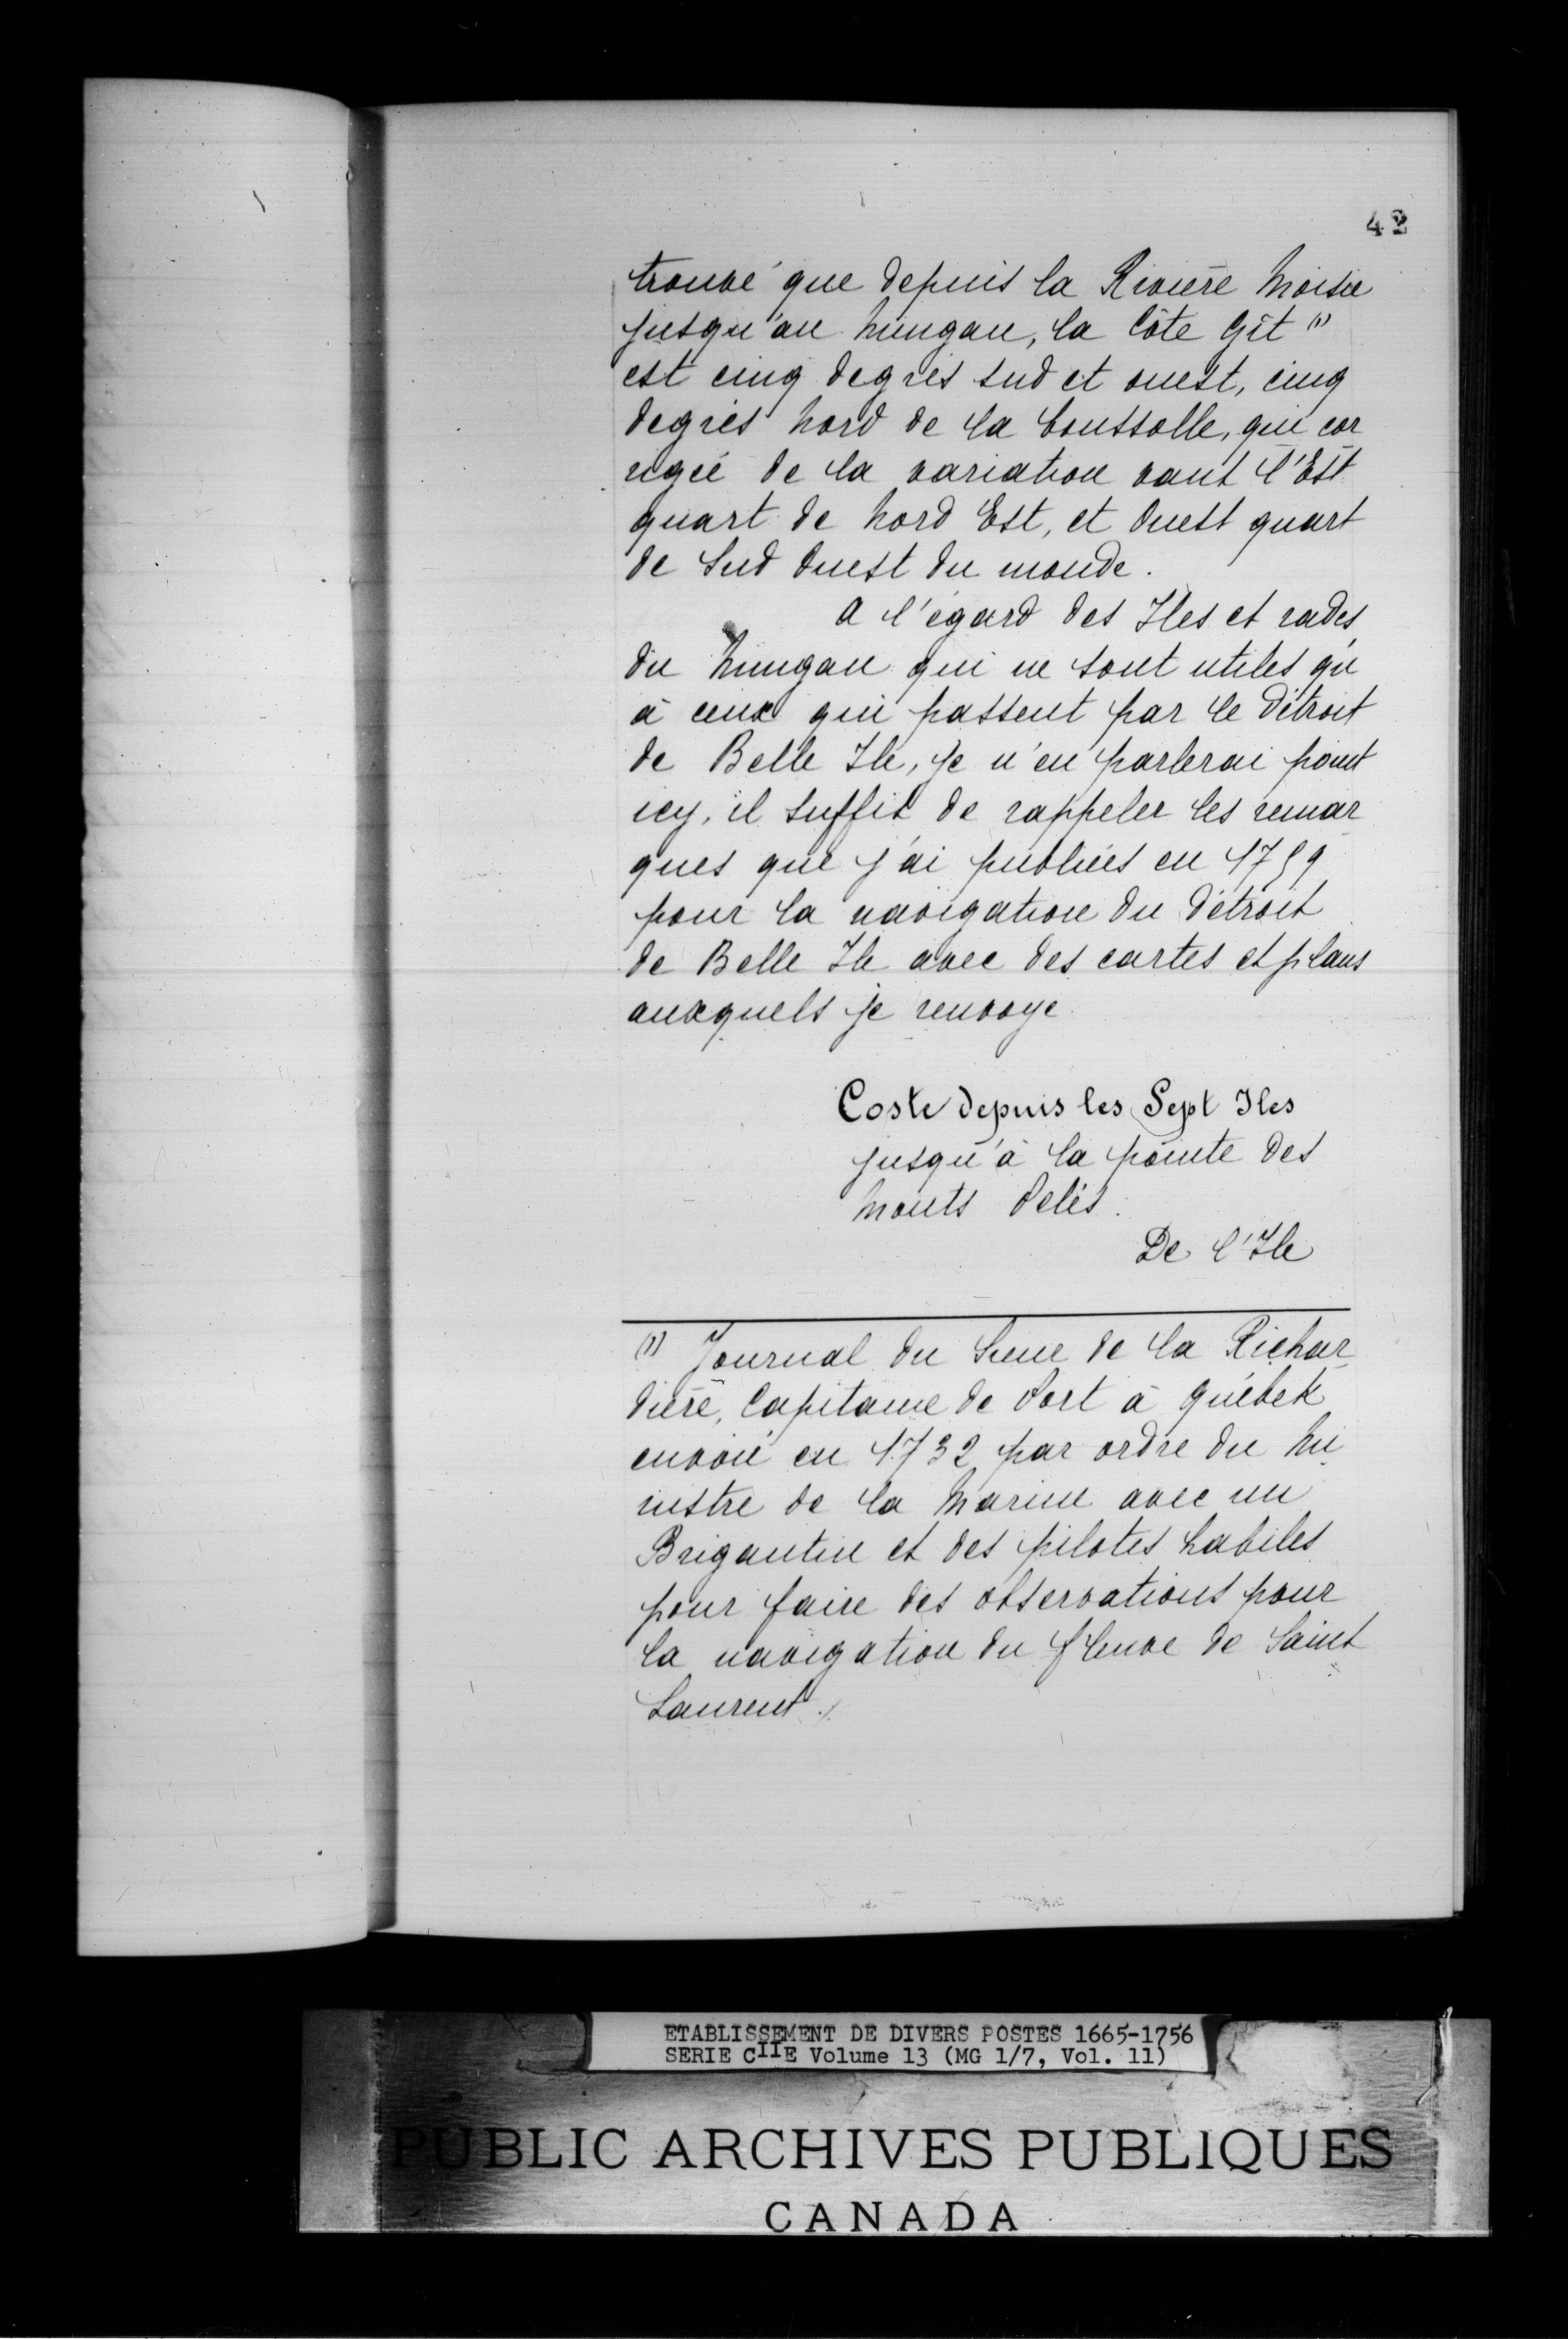 42
trouvé que depuis la Rivière Moisie
jusqu'au Mingan, la Côte Gît (1)
est cinq degrés sud et ouest, cinq
degrés Nord de la boussolle, qui cor
rigée de la variation vaut l'Est
quart de Nord Est, et Ouest quart
de Sud Ouest du monde.
A l'égard des Iles et rades
du Mingan qui ne sont utiles qu'
à ceux qui passent par le Détroit
de Belle Ile, je n'en parlerai point
icy, il suffit de rappeler les remar
ques que j'ai publiées en 1759
pour la navigation du Détroit
de Belle Ile avec des cartes et plans
auxquels je renvoye
Coste depuis les Sept Iles
jusqu'à la pointe des
Monts Pelés.
De l'Ile
(1) Journal du Sieur de la Richar
dière, Capitaine de Port à Québek
envoié en 1732 par ordre du Mi
nistre de la Marine avec un
Brigantin et des pilotes habiles
pour faire des observations pour
la navigation du fleuve de Saint
Laurent.
ETABLISSEMENT DE DIVERS POSTES 1665-1756
SERIE CIIE Volume 13 (MG 1/7, Vol. 11)
PUBLIC ARCHIVES PUBLIQUES
CANADA